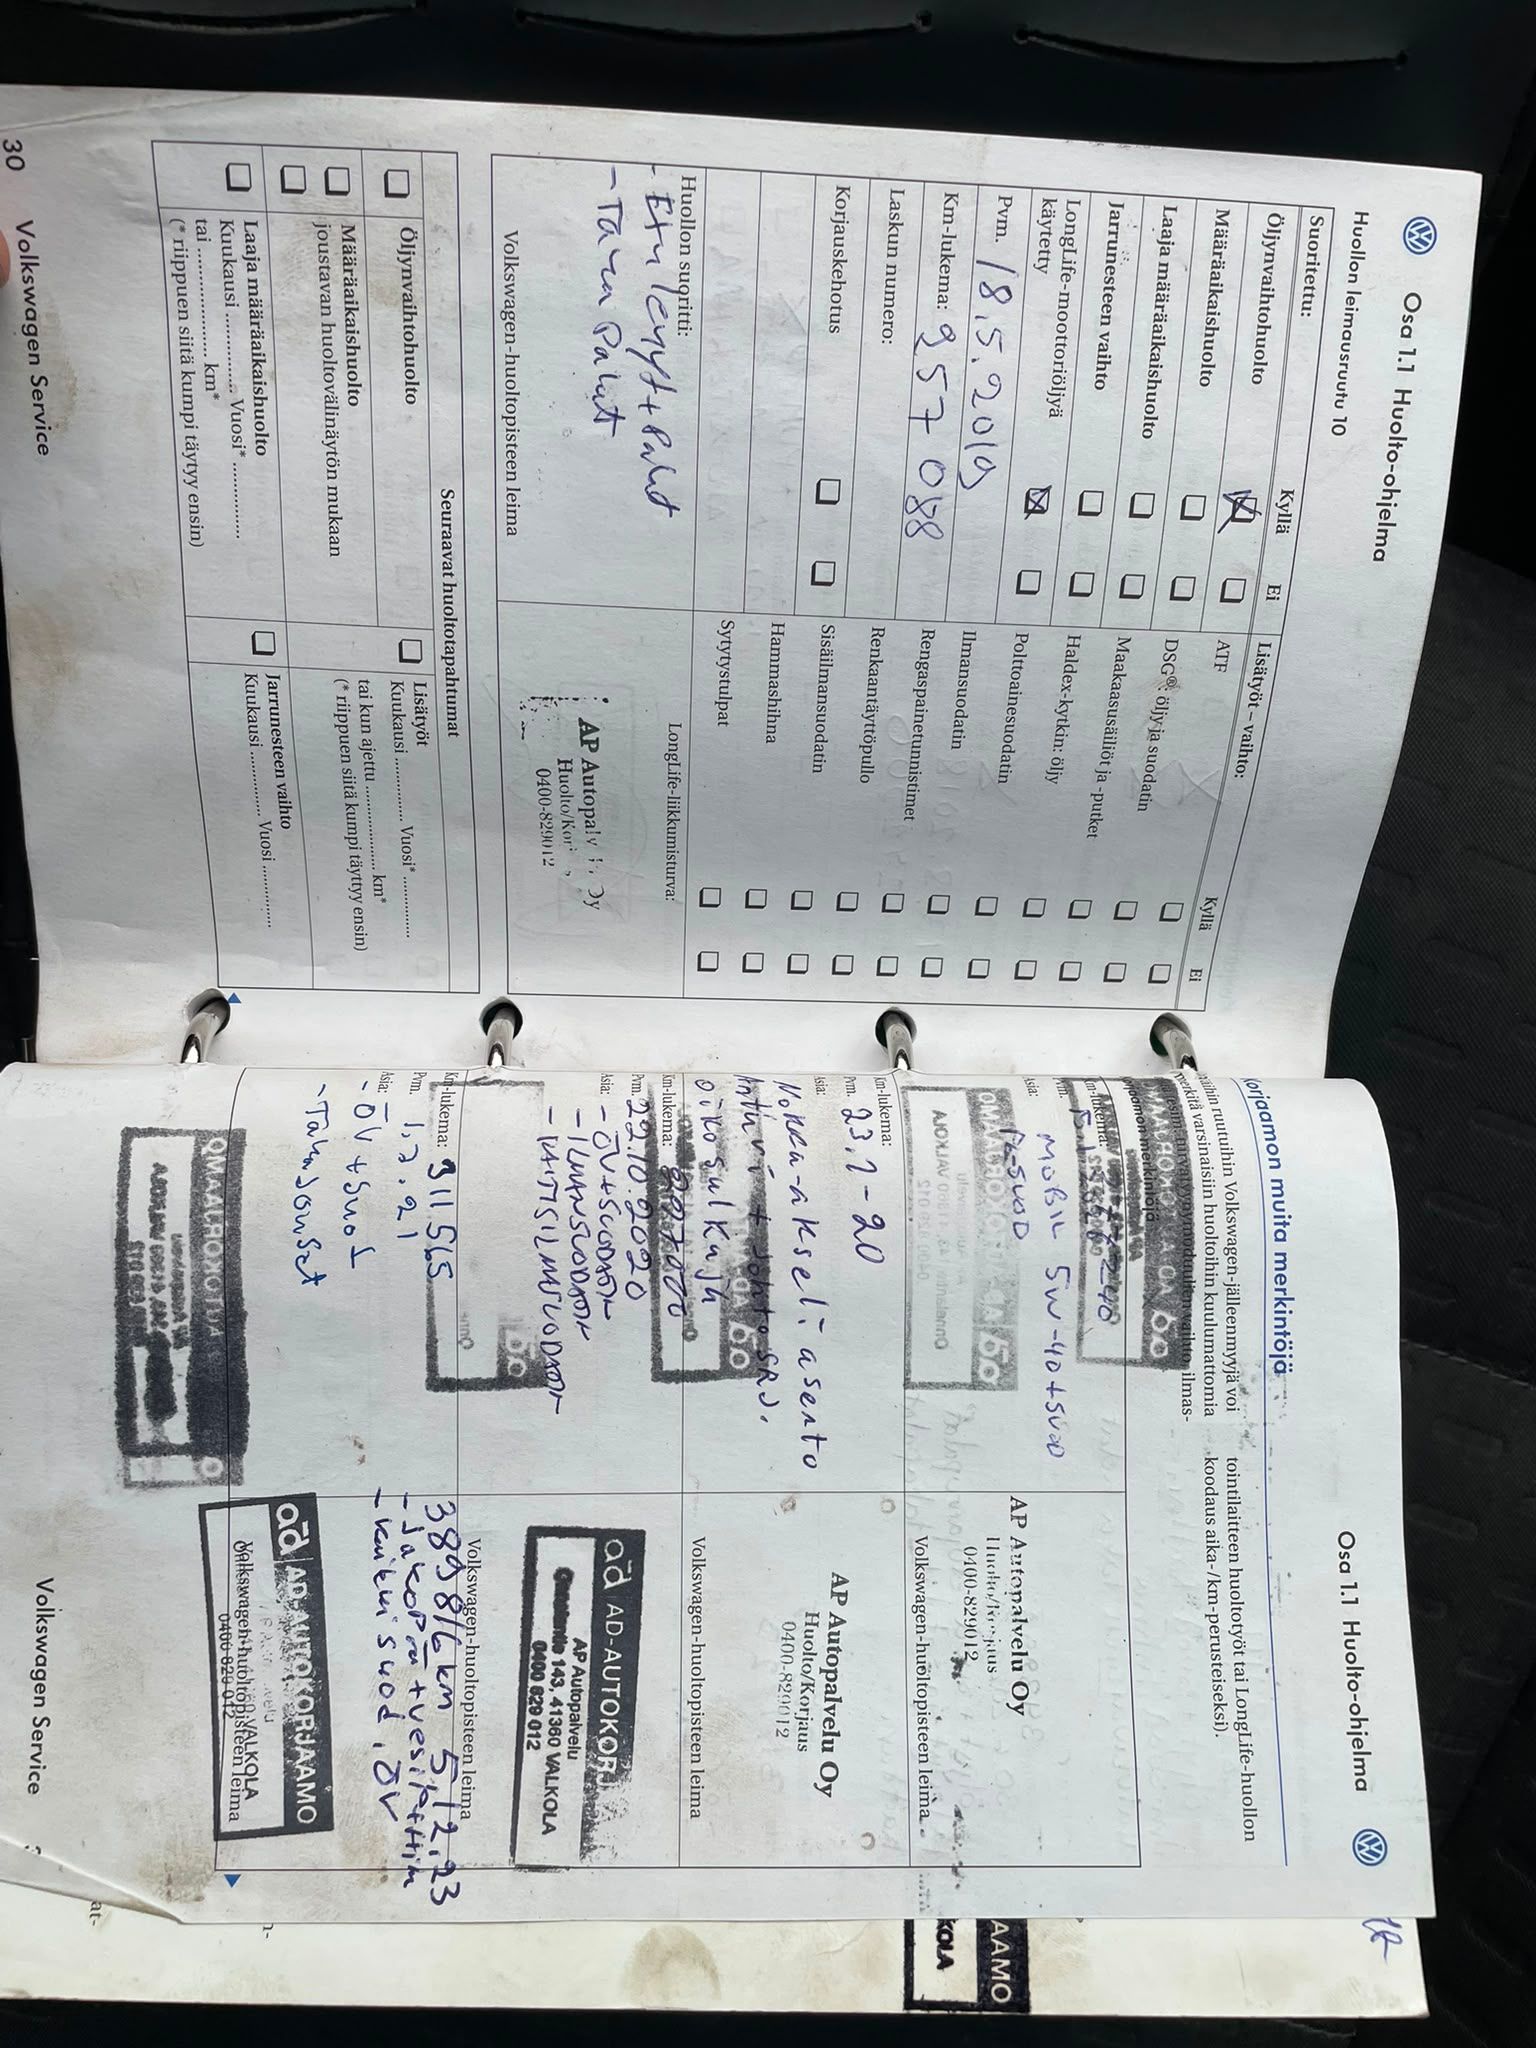 Osa 1.1 Huolto-ohjelma
Huollon leimausruutu 10
Suoritettu:
Kyllä
Ei
Öljynvaihtohuolto
Määräaikaishuolto
Laaja määräaikaishuolto
Jarrunesteen vaihto
LongLife-moottoriöljyä
käytetty
Pvm. 18.5.2019
Km-lukema: 257 088
Laskun numero:
Korjauskehotus
Lisätyöt – vaihto:
Kyllä
Ei
ATF
DSG®: öljy ja suodatin
Maakaasusäiliöt ja -putket
Haldex-kytkin: öljy
Polttoainesuodatin
Ilmansuodatin
Rengaspainetunnistimet
Renkaantäyttöpullo
Sisäilmansuodatin
Hammashihna
Sytytystulpat
Huollon suoritti:
- Etu levyt + Palat
- Taka Palat
Volkswagen-huoltopisteen leima
LongLife-liikkumisturva:
AP Autopalv Oy
Huolto/Kor
0400-829012
Seuraavat huoltotapahtumat
Öljynvaihtohuolto
Määräaikaishuolto
joustavan huoltovälinäytön mukaan
Laaja määräaikaishuolto
Kuukausi ................ Vuosi* ................
tai ................ km*
(* riippuen siitä kumpi täytyy ensin)
Lisätyöt
Kuukausi ............ Vuosi* ............
tai kun ajettu ................ km*
(* riippuen siitä kumpi täyttyy ensin)
Jarrunesteen vaihto
Kuukausi ............ Vuosi ............
30
Volkswagen Service
Osa 1.1 Huolto-ohjelma
Korjaamon muita merkintöjä
Näihin ruutuihin Volkswagen-jälleenmyyjä voi
merkitä varsinaisiin huoltoihin kuulumattomia
tointilaitteen huoltotyöt tai LongLife-huollon
koodaus aika-/km-perusteiseksi).
Km-lukema:
Pvm.
Asia:
MOBIL 5W-40 + SUOD
AP Autopalvelu Oy
Huolto/Korjaus
0400-829012
Volkswagen-huoltopisteen leima
Km-lukema:
Pvm. 23.1-20
Asia:
Nokka-akseli asento
Anturi + Johto SRJ.
oiko sulkuja
AP Autopalvelu Oy
Huolto/Korjaus
0400-829012
Volkswagen-huoltopisteen leima
Km-lukema:
Pvm. 22.10.2020
Asia: - ÖV + SUODATIN
- ILMANSUODATIN
- RAITISILMASUODATIN
ad AD-AUTOKORJ
AP Autopalvelu
143, 41360 VALKOLA
0400 829 012
Volkswagen-huoltopisteen leima
Km-lukema: 311 565
Pvm.
Asia:
- ÖV + Suod
- Taka Jouset
389 816 km 5.12.23
- Jakopää + vesip+Him
- kaikki suod, ÖV
ad AD-AUTOKORJAAMO
VALKOLA
0400 829 012
Volkswagen-huoltopisteen leima
Volkswagen Service
AAMO
KOLA